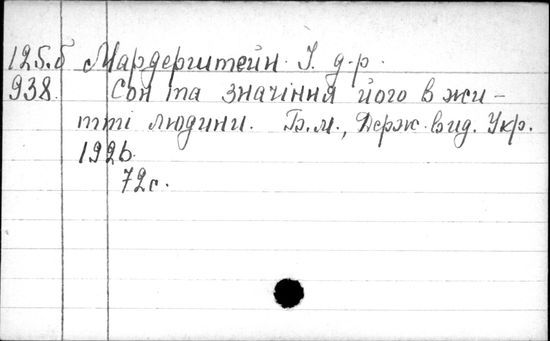 125.б Мардерштейн І. д-р.
938. Сон та значіння його в жи-
тті людини. Б.м., Держ. вид. Укр.
1926
72с.